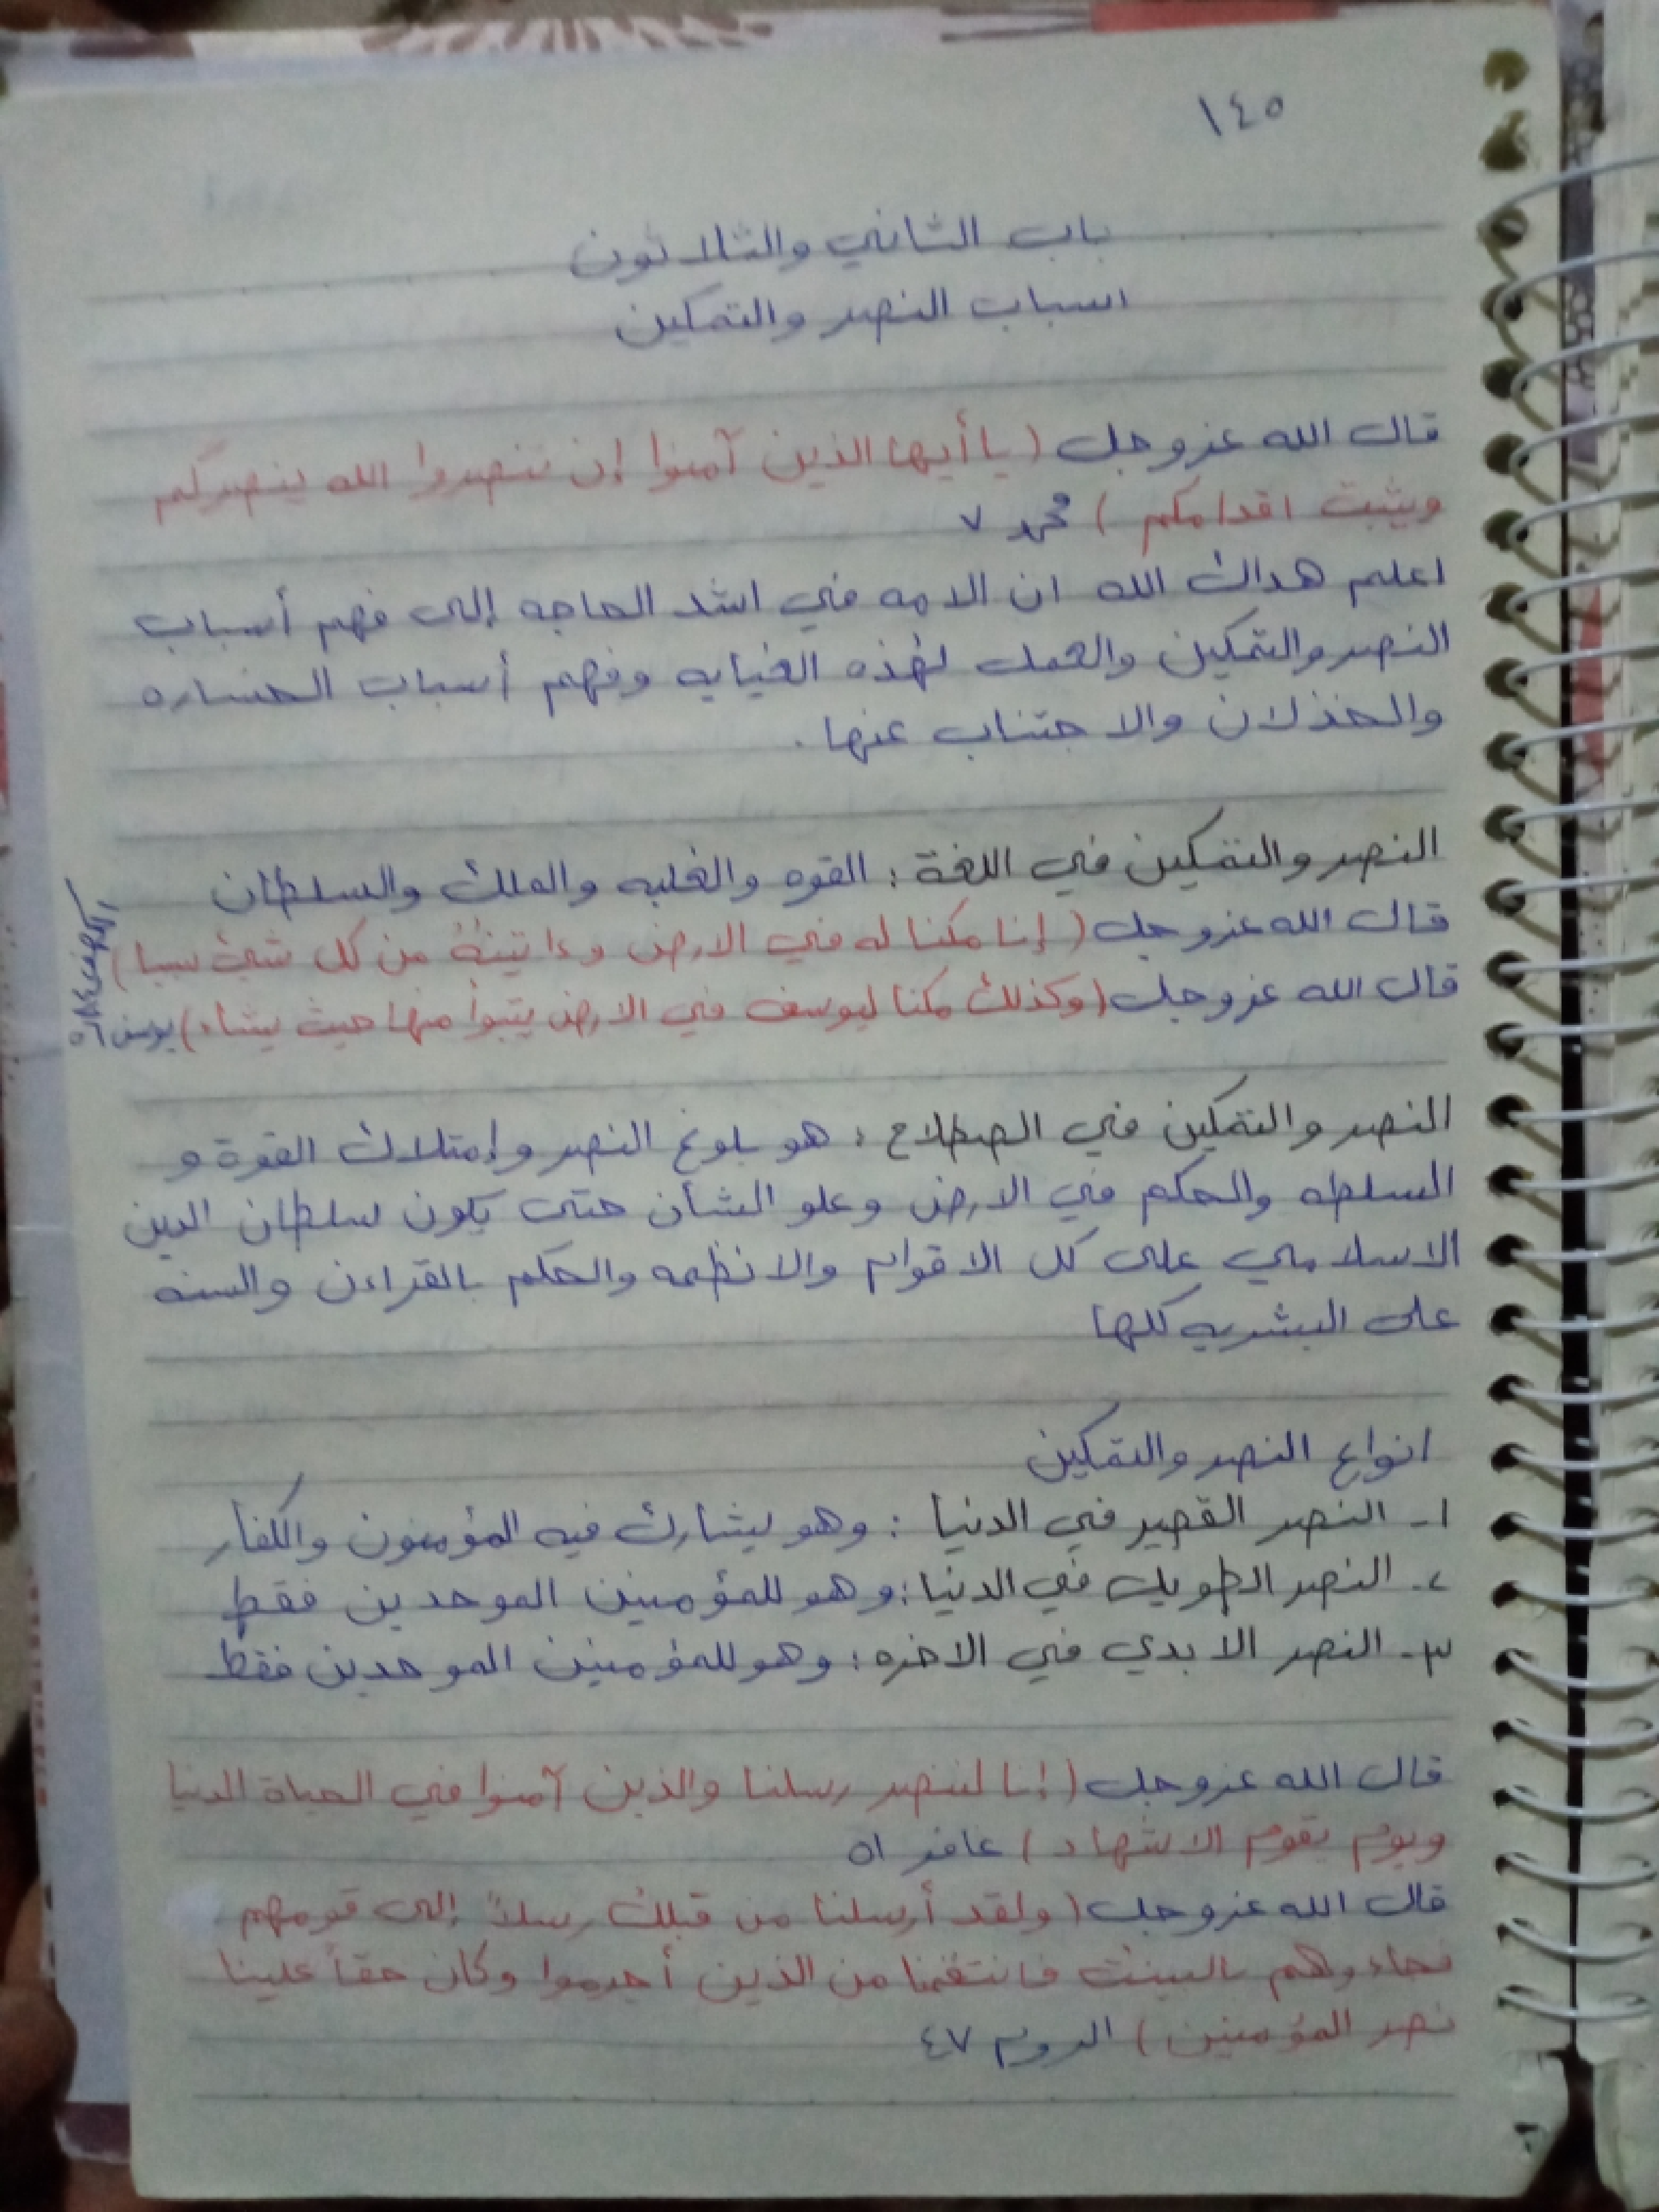 ١٤٥
باب الثاني والثلاثون
اسباب النصر والتمكين
قال الله عزوجل (يا أيها الذين آمنوا إن تنصروا الله ينصركم
ويثبت اقدامكم) محمد ٧
اعلم هداك الله ان الامه في اشد الحاجه إلى فهم أسباب
النصر والتمكين والعمل لهذه الغيايه وفهم أسباب الخساره
والخذلان والاجتناب عنها.
النصر والتمكين في اللغة: القوه والغلبه والملك والسلطان
قال الله عزوجل (إنا مكنا له في الارض وءاتينهُ من كل شيئ سببا) الكهف ٨٤
قال الله عزوجل (وكذلك مكنا ليوسف في الارض يتبوأ منها حيث يشاء) يوسف ٥٦
النصر والتمكين في الصطلاح: هو بلوغ النصر وإمتلاك القوة و
السلطه والحكم في الارض وعلو الشأن حتى يكون سلطان الدين
الاسلامي على كل الاقوام والانظمه والحكم بالقراءن والسنه
على البشريه كلها
انواع النصر والتمكين
١- النصر القصير في الدنيا: وهو يشارك فيه المؤمنون والكفار
٢- النصر الطويل في الدنيا: وهو للمؤمنين الموحدين فقط
٣- النصر الابدي في الاخره: وهو للمؤمنين الموحدين فقط
قال الله عزوجل (إنا لننصر رسلنا والذين آمنوا في الحياة الدنيا
ويوم يقوم الاشهاد) غافر ٥١
قال الله عزوجل (ولقد أرسلنا من قبلك رسلاً إلى قومهم
فجاءوهم بالبينت فانتقمنا من الذين أجرموا وكان حقاً علينا
نصر المؤمنين) الروم ٤٧